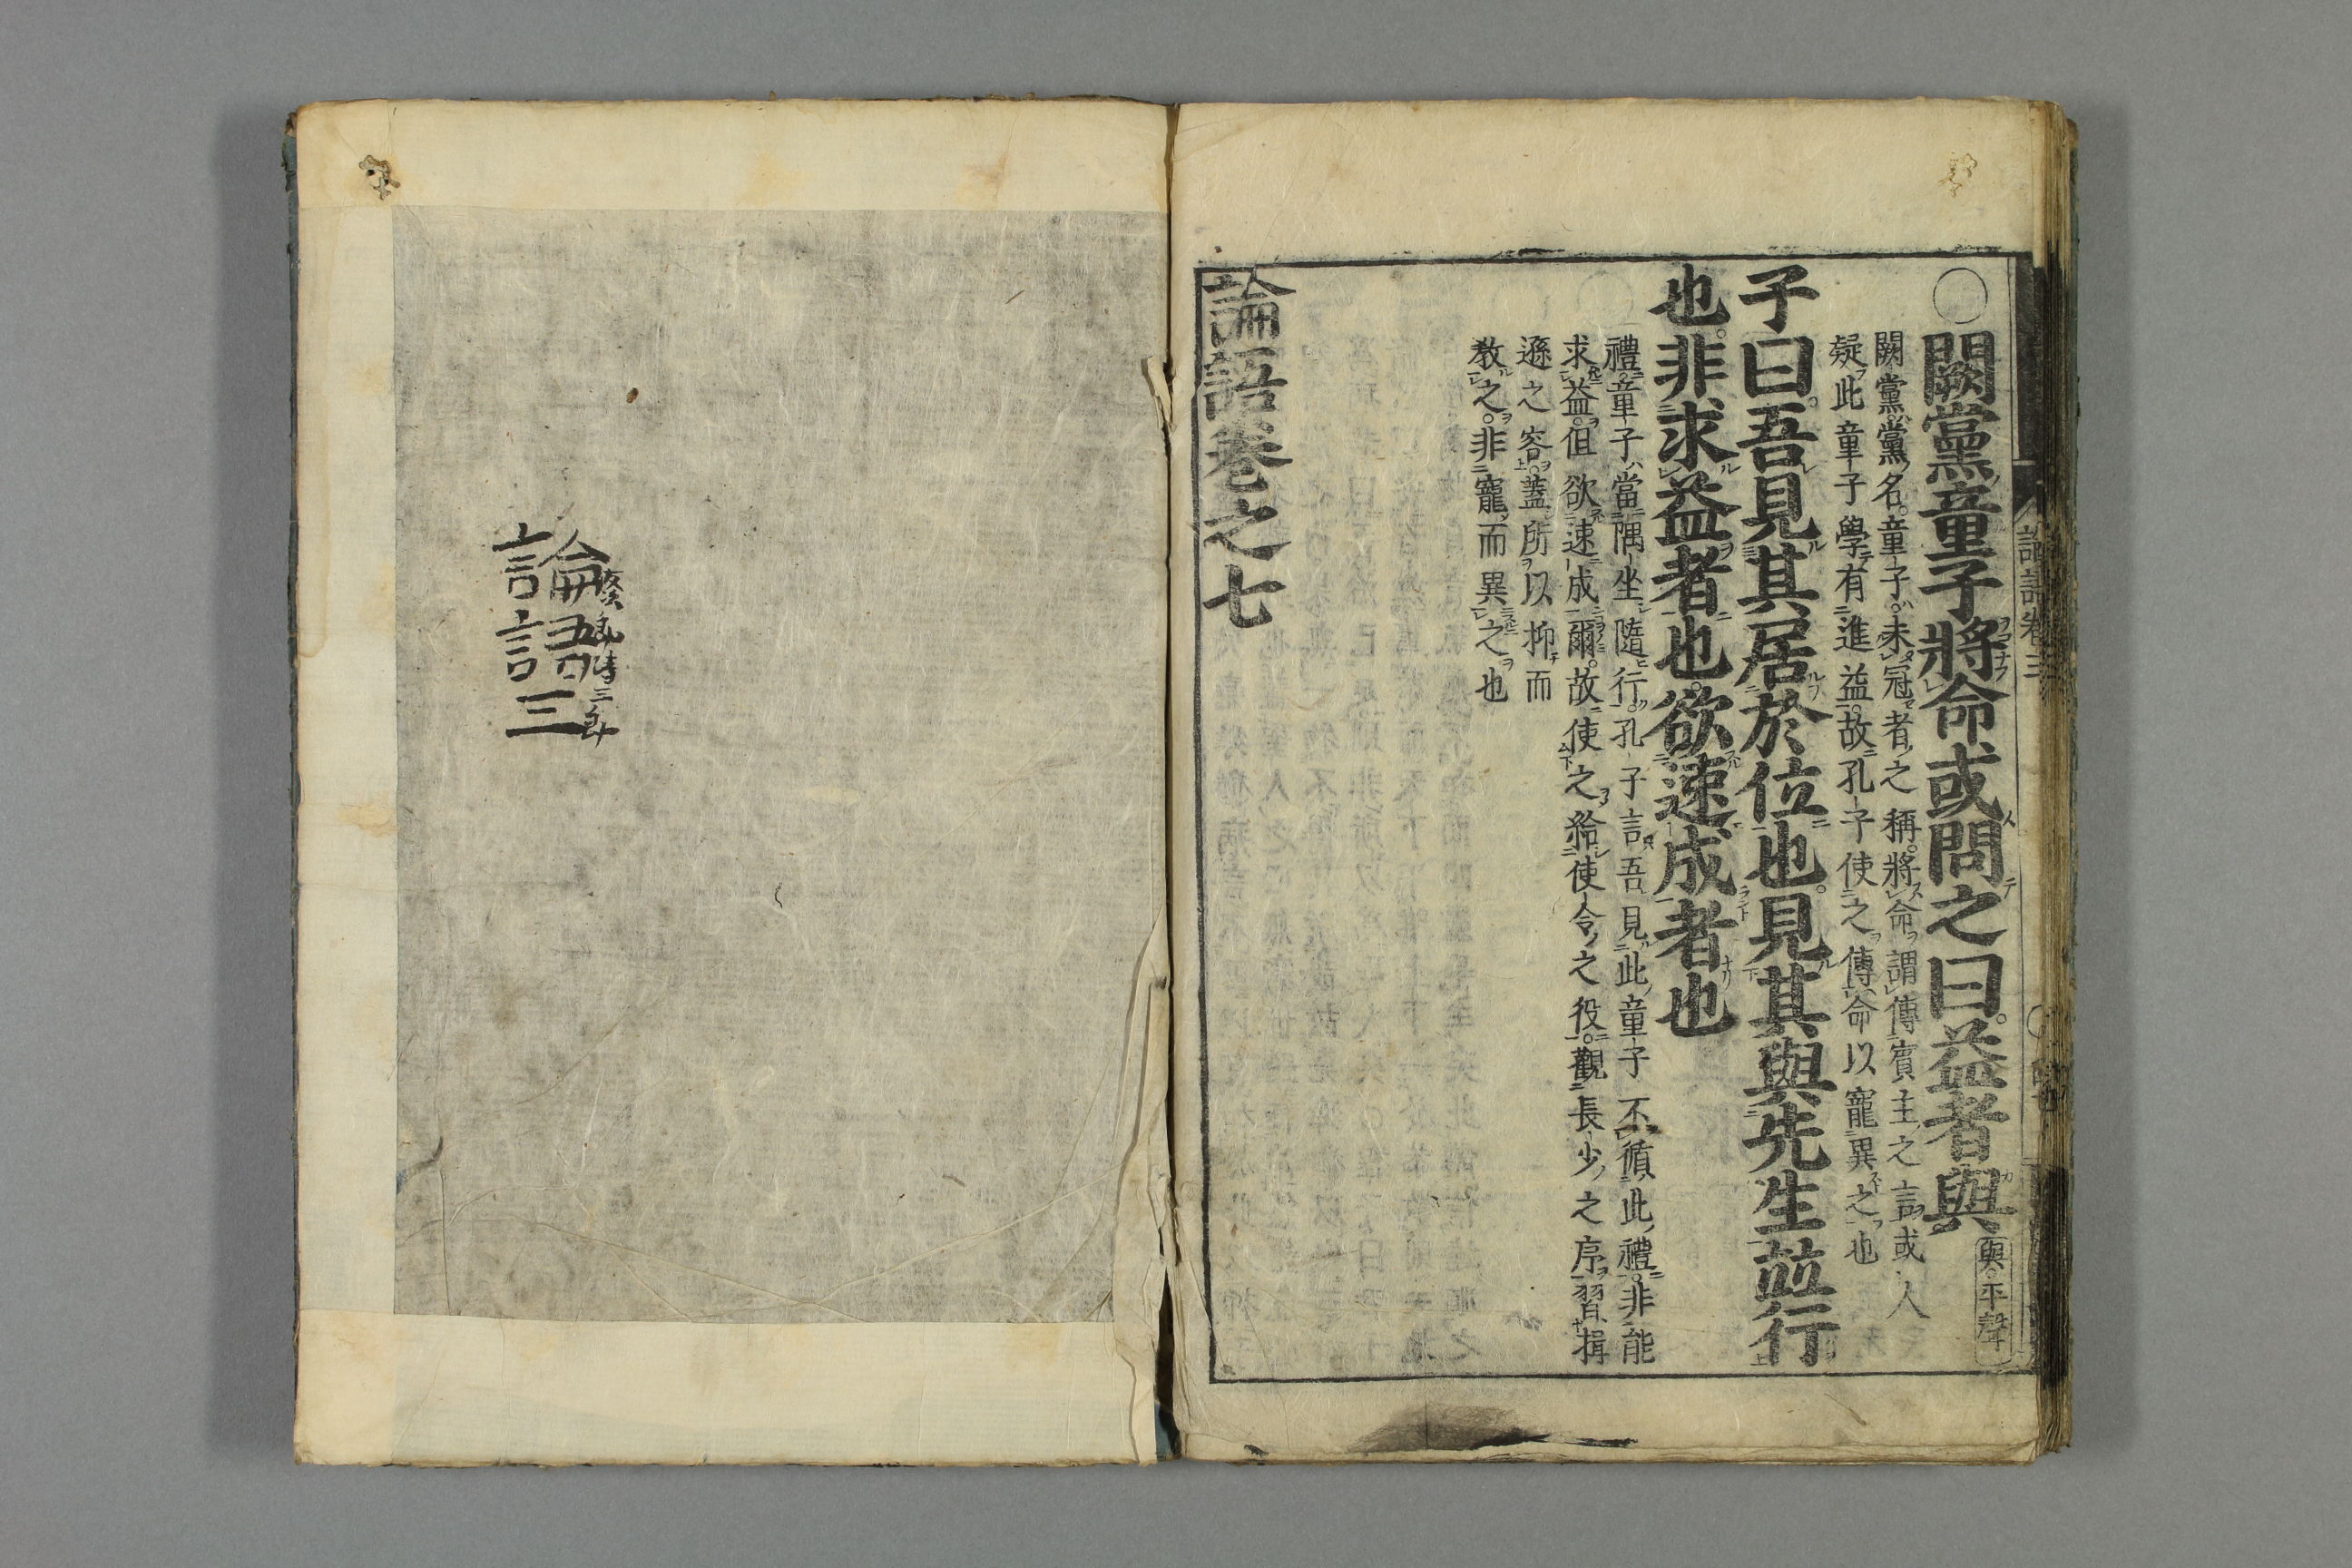 ○闕黨童子將命或問之曰益者與
與平聲
闕黨黨名童子未冠者之稱將命謂傳賓主之言或人
疑此童子學有進益故孔子使之傳命以寵異之也
子曰吾見其居於位也見其與先生並行
也非求益者也欲速成者也
禮童子當隅坐隨行孔子言吾見此童子不循此禮非能
求益但欲速成爾故使之給使令之役觀長少之序習揖
遜之容蓋所以抑而
教之非寵而異之也
論語卷之七
論語三